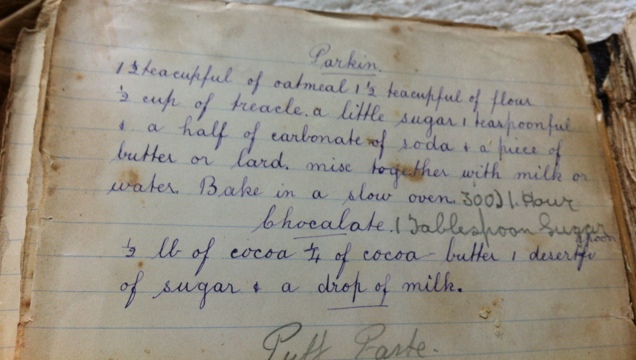 Parkin.
1½ teacupful of oatmeal 1½ teacupful of flour
½ cup of treacle. a little sugar 1 teaspoonful
& a half of carbonate of soda & a piece of
butter or lard. mix together with milk or
water. Bake in a slow oven. 300) 1. Hour
Chocalate. 1 Tablespoon Sugar
½ lb of cocoa ¼ of cocoa butter 1 desertspoon
of sugar & a drop of milk.
Puff Paste.